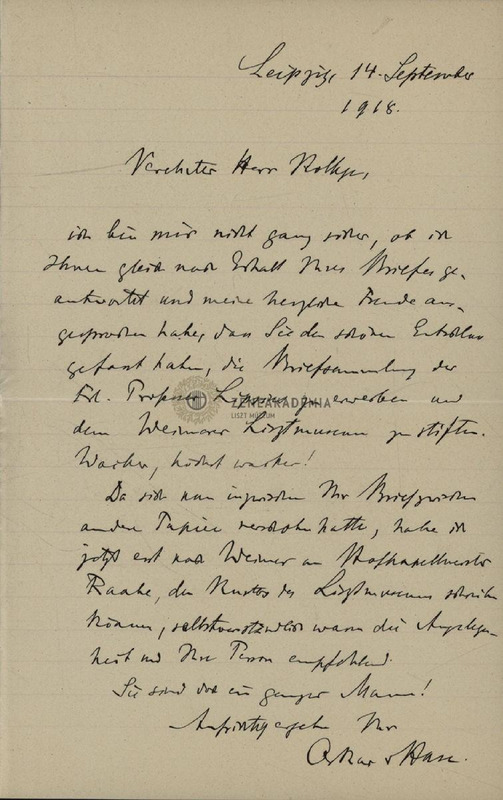 Leipzig 14. September
1918.
Verehrter Herr
ich bin mir nicht ganz sicher, ob ich
Ihnen gleich nach Erhalt Ihres Briefes ge-
antwortet und meine herzliche Freude aus-
gesprochen habe, dass Sie den schönen Entschluss
gefasst haben, die Briefsammlung der
Frl. Lipsius zu erwerben und
dem Weimarer Lisztmuseum zu stiften.
Wacker, höchst wacker!
ZENEAKADÉMIA
LISZT MÚZEUM
Da sich nun inzwischen Ihr Brief zwischen
andere Papiere verschoben hatte, habe ich
jetzt erst nach Weimar an Hofkapellmeister
Raabe, den Kustos des Lisztmuseums schreiben
können, selbstverständlich warm die Angelegen-
heit und Ihre Person empfehlend.
Sie sind doch ein ganzer Mann!
Ihr
Oskar v Hase.